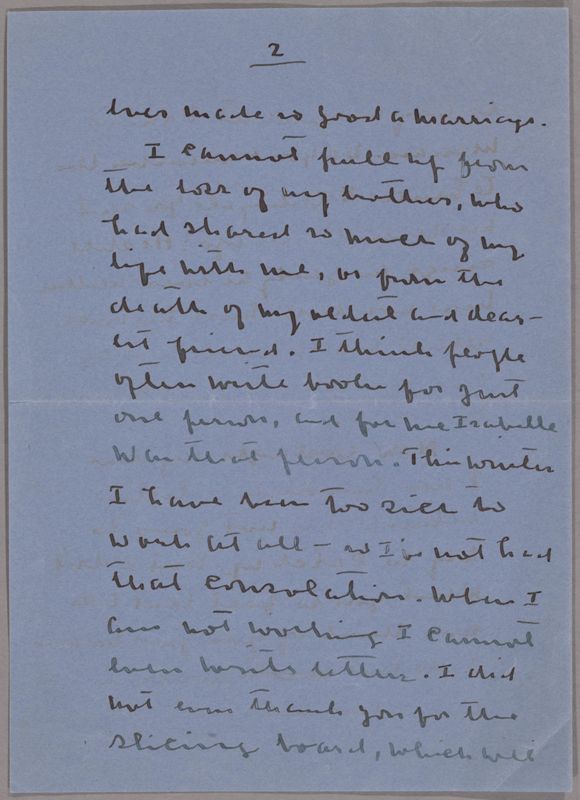 2
ever made so good a marriage.
I cannot pull up from
the loss of my brother, who
had shared so much of my
life with me, or from the
death of my oldest and dear-
est friend. I think people
often write books for just
one person, and for me Isabelle
was that person. This winter
I have been too sick to
work at all - so I've not had
that consolation. When I
am not working I cannot
even write letters. I did
not even thank you for the
slicing board, which will